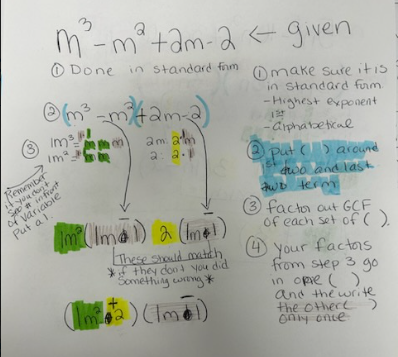 m³ - m² + 2m - 2 ← given
① Done in standard form
② (m³ - m²)(+2m - 2)
③ 1m³ =
1m² =
2m: 2 · m
2: 2 · 1
Remember if you don't see # infront of variable put a 1.
1m²(1m - 1) 2(1m - 1)
These should match
* if they don't you did something wrong *
(1m² + 2)(1m - 1)
① make sure it is
in standard form
- Highest exponent
1st
- alphabetical
② put ( ) around
1st two and last
two term
③ factor out GCF
of each set of ( ).
④ your factors
from step 3 go
in one ( )
and the write
the others )
only once